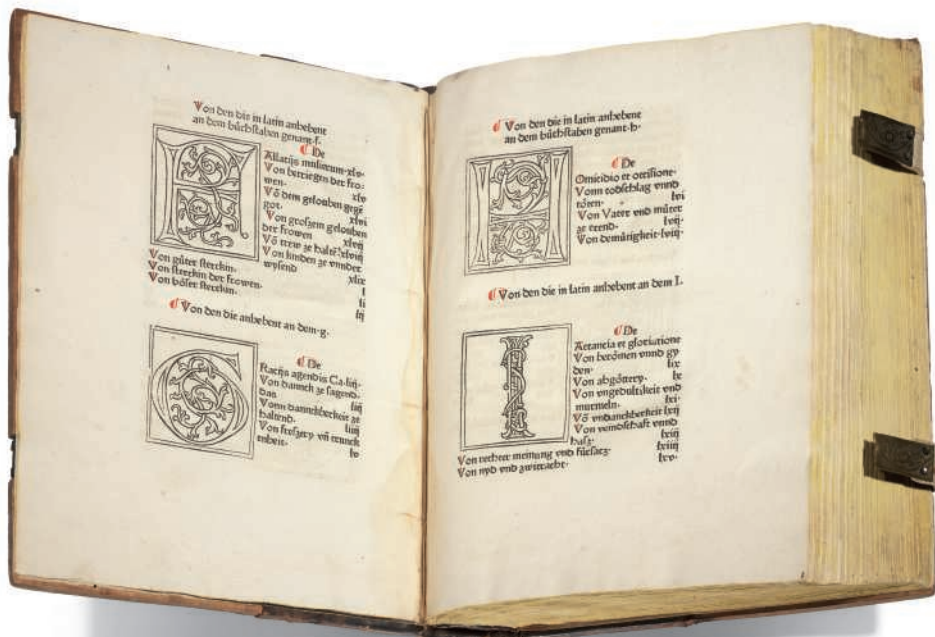 Von den die in latin anhebent
an dem bůchstaben genant·f·
¶ De
Allatijs mulierum·xlv·
Von betriegen der fro-
wen· xlv
Võ dem gelouben gegē
got· xlvi
Von groszem gelouben
der frowen xlvij
Võ trew ze haltē·xlviij
Von kinden ze vnder
wysend xlix
Von gůter sterckin· l
Von sterckin der frowen· li
Von böser sterckin· lij
¶ Von den die anhebent an dem·g·
¶ De
Ratijs agendis Ca·liij·
Von danneck ze sagend·
das liij
Vonn danneckberkeit ze
haltend· liiij
Von freszery vñ trunck
enheit· lv
¶ Von den die in latin anhebent
an dem bůchstaben genant·h·
¶ De
Omicidio et occisione·
Vonn todschlag vnnd
töten· lvi
Von Vater vnd můter
ze erend· lvij
Von demůtigkeit·lviij·
¶ Von den die in latin anhebent an dem I·
¶ De
Actancia et gloriatione
Von berömen vnnd gy
den· lix
Von abgöttery· lx
Von vngedultikeit vnd
murmeln· lxi·
Võ vndanckberkeit lxij
Von veindschaft vnnd
hasz· lxiij
Von rechter meinung vnd fürsatz· lxiiij
Von nyd vnd zwitracht· lxv·